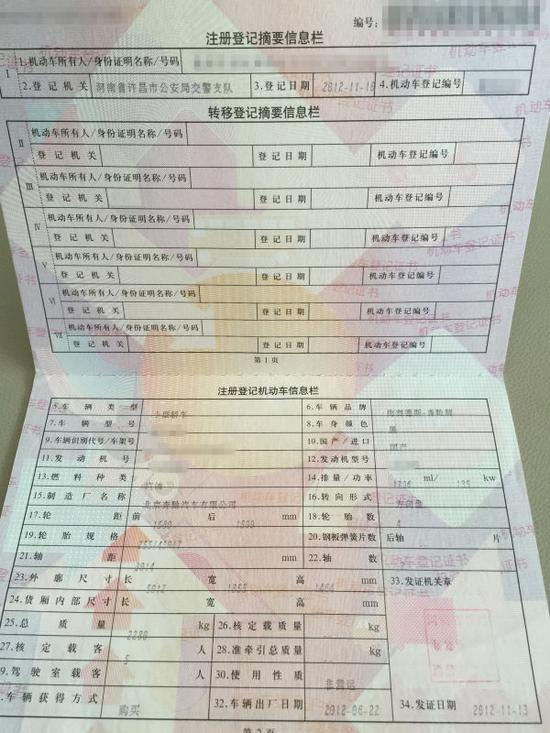 编号:
注册登记摘要信息栏
Ⅰ 1.机动车所有人/身份证明名称/号码
2.登记机关 河南省许昌市公安局交警支队 3.登记日期 2012-11-1 4.机动车登记编号
转移登记摘要信息栏
Ⅱ 机动车所有人/身份证明名称/号码
登记机关 登记日期 机动车登记编号
Ⅲ 机动车所有人/身份证明名称/号码
登记机关 登记日期 机动车登记编号
Ⅳ 机动车所有人/身份证明名称/号码
登记机关 登记日期 机动车登记编号
Ⅴ 机动车所有人/身份证明名称/号码
登记机关 登记日期 机动车登记编号
Ⅵ 机动车所有人/身份证明名称/号码
登记机关 登记日期 机动车登记编号
Ⅶ 机动车所有人/身份证明名称/号码
登记机关 登记日期 机动车登记编号
第1页
注册登记机动车信息栏
5.车辆类型 小型轿车 6.车辆品牌
7.车辆型号 8.车身颜色 黑
9.车辆识别代号/车架号 10.国产/进口 国产
11.发动机号 12.发动机型号
13.燃料种类 14.排量/功率 ml/ kw
15.制造厂名称 北京奔驰汽车有限公司 16.转向形式
17.轮距 前 后 mm 18.轮胎数 4
19.轮胎规格 20.钢板弹簧片数 后轴 片
21.轴距 mm 22.轴数
23.外廓尺寸 长 宽 高 mm 33.发证机关章
24.货厢内部尺寸 长 宽 高 mm
25.总质量 kg 26.核定载质量 kg
27.核定载客 5 人 28.准牵引总质量 kg
9.驾驶室载客 人 30.使用性质 非营运
.车辆获得方式 购买 32.车辆出厂日期 2012-06-22 34.发证日期 2012-11-13
第2页
机动车登记证书